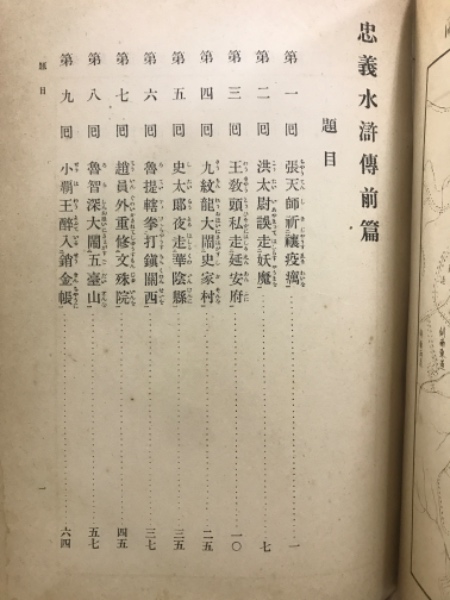 忠義水滸傳前篇
題目
第一回 張天師祈禳疫癘 一
第二回 洪太尉誤走妖魔 七
第三回 王教頭私走延安府 一〇
第四回 九紋龍大鬧史家村 二五
第五回 史太郎夜走華陰縣 三五
第六回 魯提轄拳打鎭關西 三七
第七回 趙員外重修文殊院 四五
第八回 魯智深大鬧五臺山 五七
第九回 小覇王醉入銷金帳 六四
題目
一